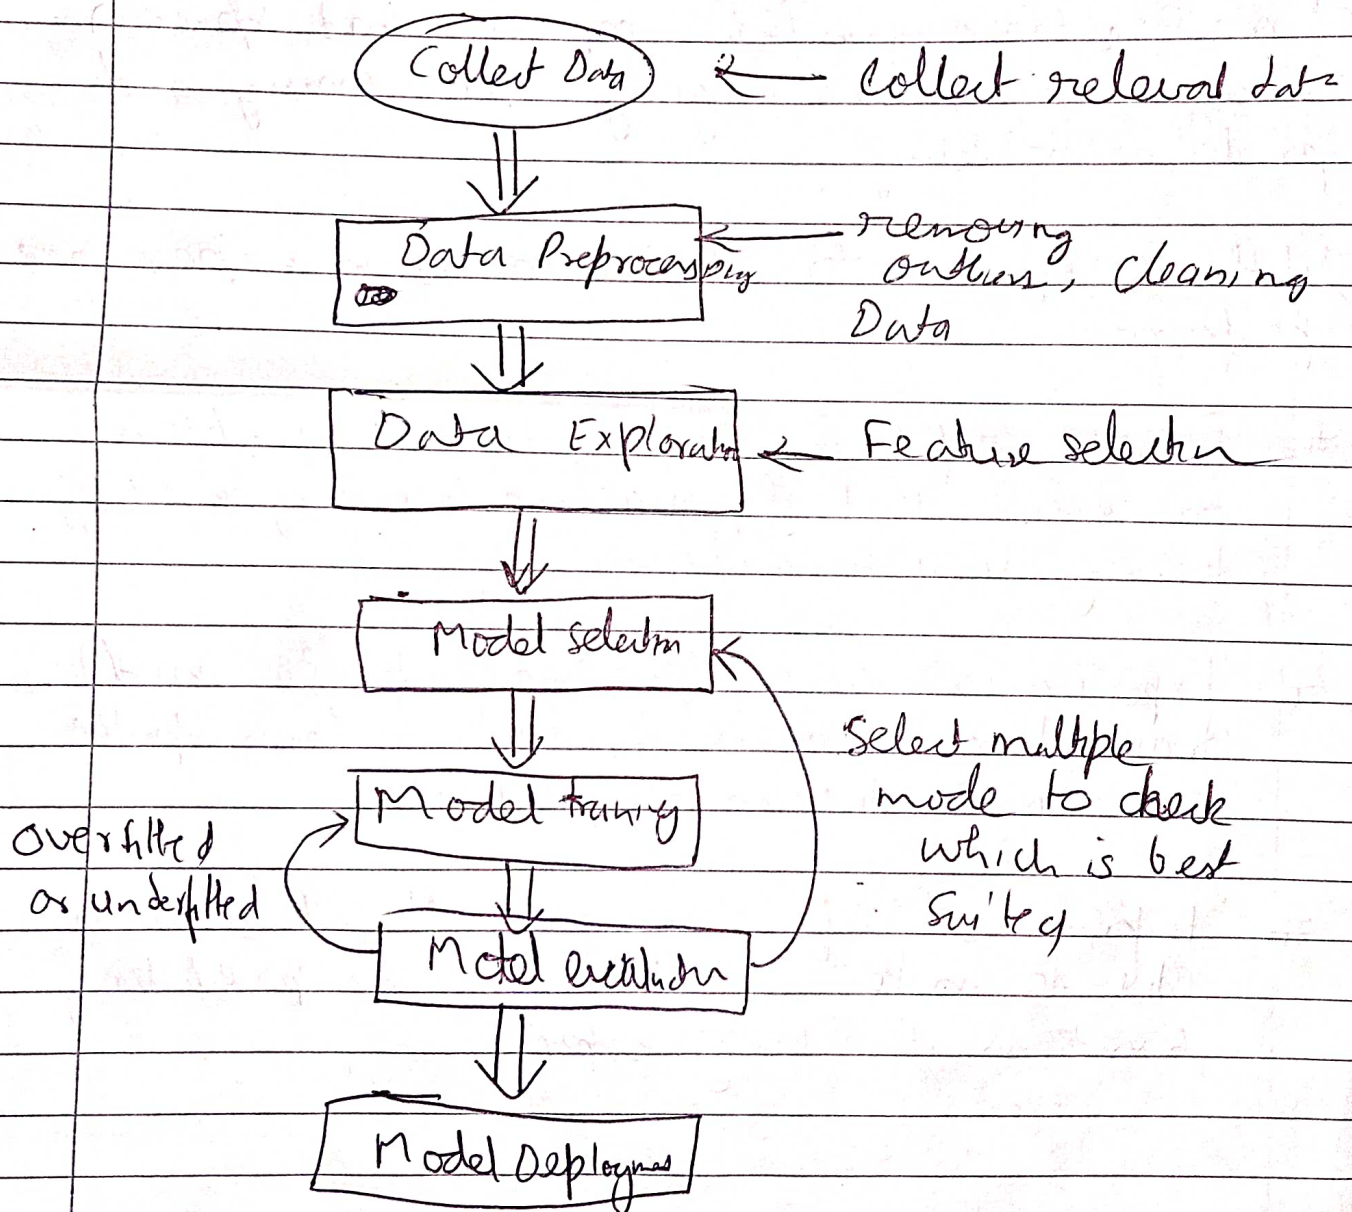 Collect Data
Collect releval data
Data Preprocessing
removing
outliers, cleaning
Data
Data Exploration
Feature selection
Model selection
Select multiple
mode to check
which is best
suited
Model training
overfitted
or underfitted
Model evaluation
Model Deployment